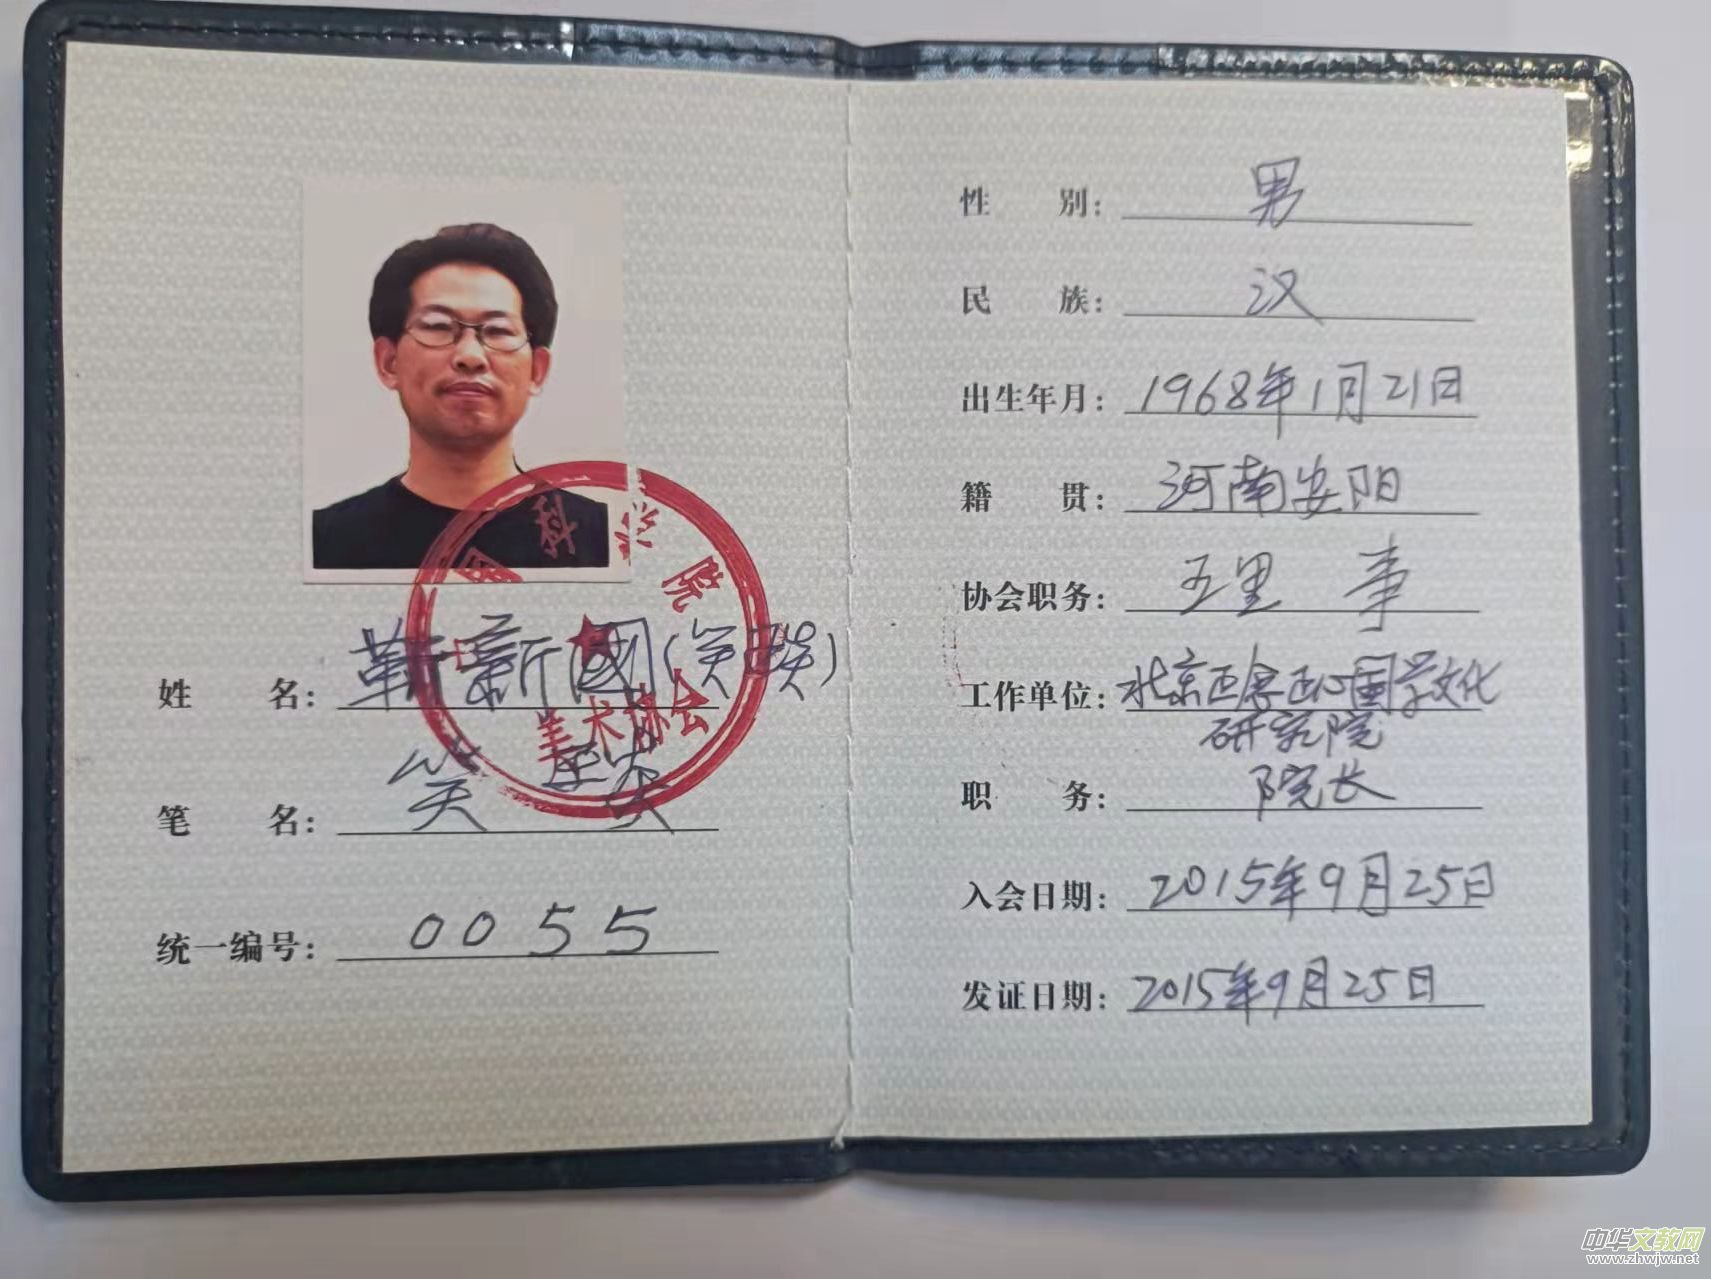 国科学院
美术协会
姓 名：靳新國(笑琰)
笔 名：笑琰
统一编号：0055
性 别：男
民 族：汉
出生年月：1968年1月21日
籍 贯：河南安阳
协会职务：理事
工作单位：北京正念正心国学文化
研究院
职 务：院长
入会日期：2015年9月25日
发证日期：2015年9月25日
中华文教网
www.zhwjw.net